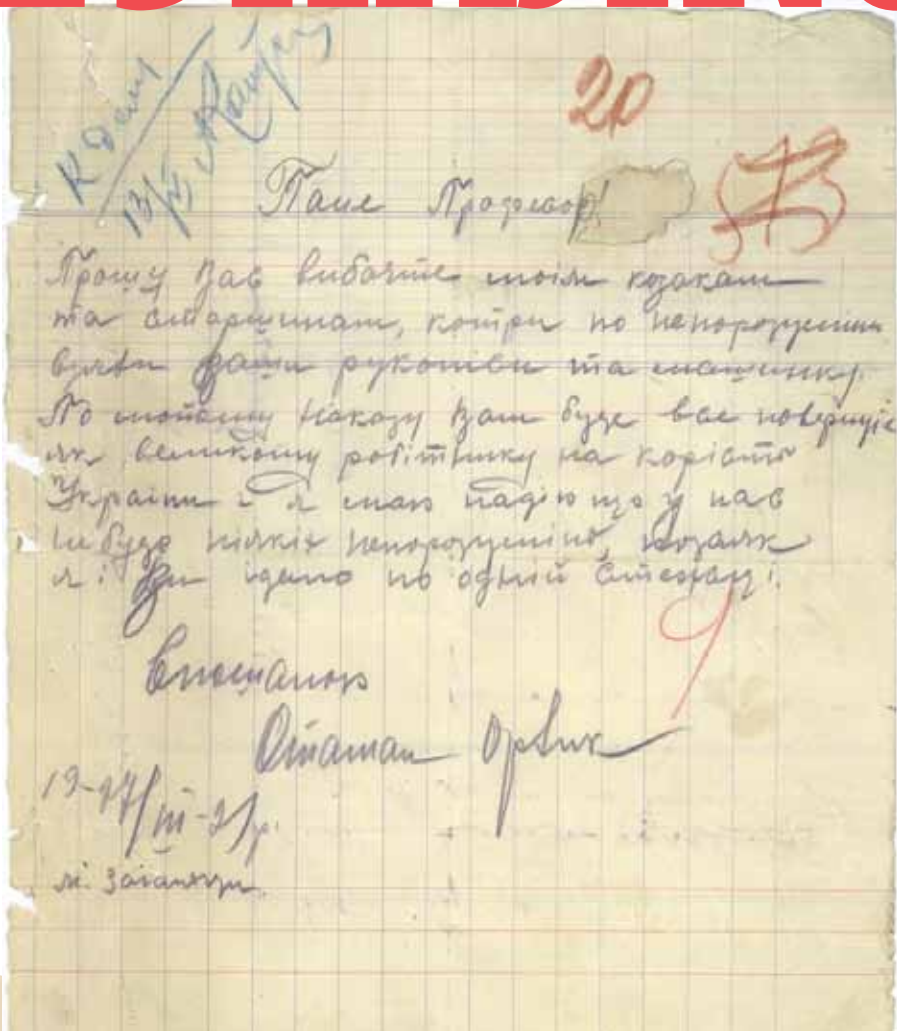 К делу
13/V
20
Пане Професор!
Прошу Вас вибачте моїм козакам
та старшинам, котри по непорозуминню
взяли Ваши рукописи та машинку.
По мойому наказу Вам буде все повернуто
як великому робітнику на корість
України і я маю надію що у нас
не буде ніяких непорозуміннів, позаяк
я і Ви ідемо по одній стежці.
Отаман Орлик
19-17/III-21 р.
м.